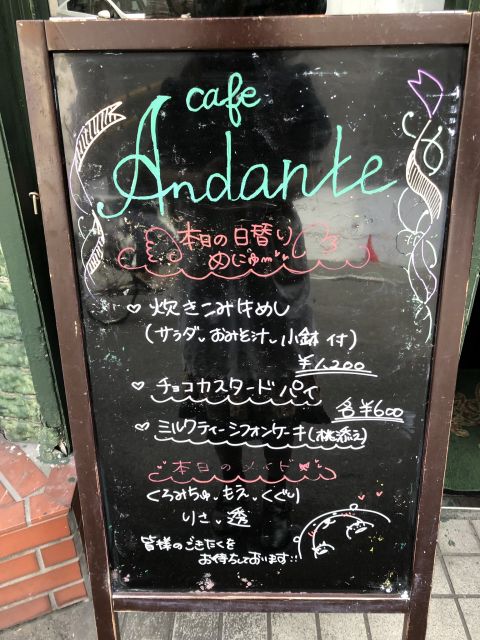 cafe
Andante
本日の日替り
めにゅー
♡ 炊きこみ牛めし
(サラダ、おみそ汁、小鉢 付)
¥1,200
♡ チョコカスタードパイ
各¥600
♡ ミルクティーシフォンケーキ(桃添え)
本日のメイド
くろみちゅ、もえ、くぐり
りさ、透
皆様のごきたくを
お待ちしております!!